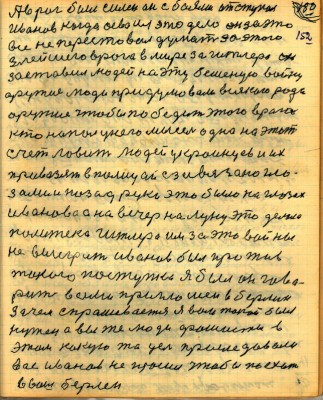 150
152
А враг был силен он с боями отступал
Иванов когда освоил это дело он за это
все не перестовал думать за этого
злейшего врага в мире за гитлера он
заставил людей на эту бешеную войну
другие люди придумовали всякого рода
оружие чтобы победить этого врага
кто напал у него мысел одна на этот
счет ловит людей украинцев и их
привозят в полицай с завязано гла-
зами и позад руки это было на глазах
иванова а на вечер на луну это делае
политека гитлера им за это войны
не выиграть иванов был против
такого поступка я был он гово-
рить если бы пришлось в Берлин
Зачем спрашивается я вам такой был
нужен а вы же люди фашисты в
этом какую та цел приследовали
вас иванов не просил чтобы поехат
в ваш берлен